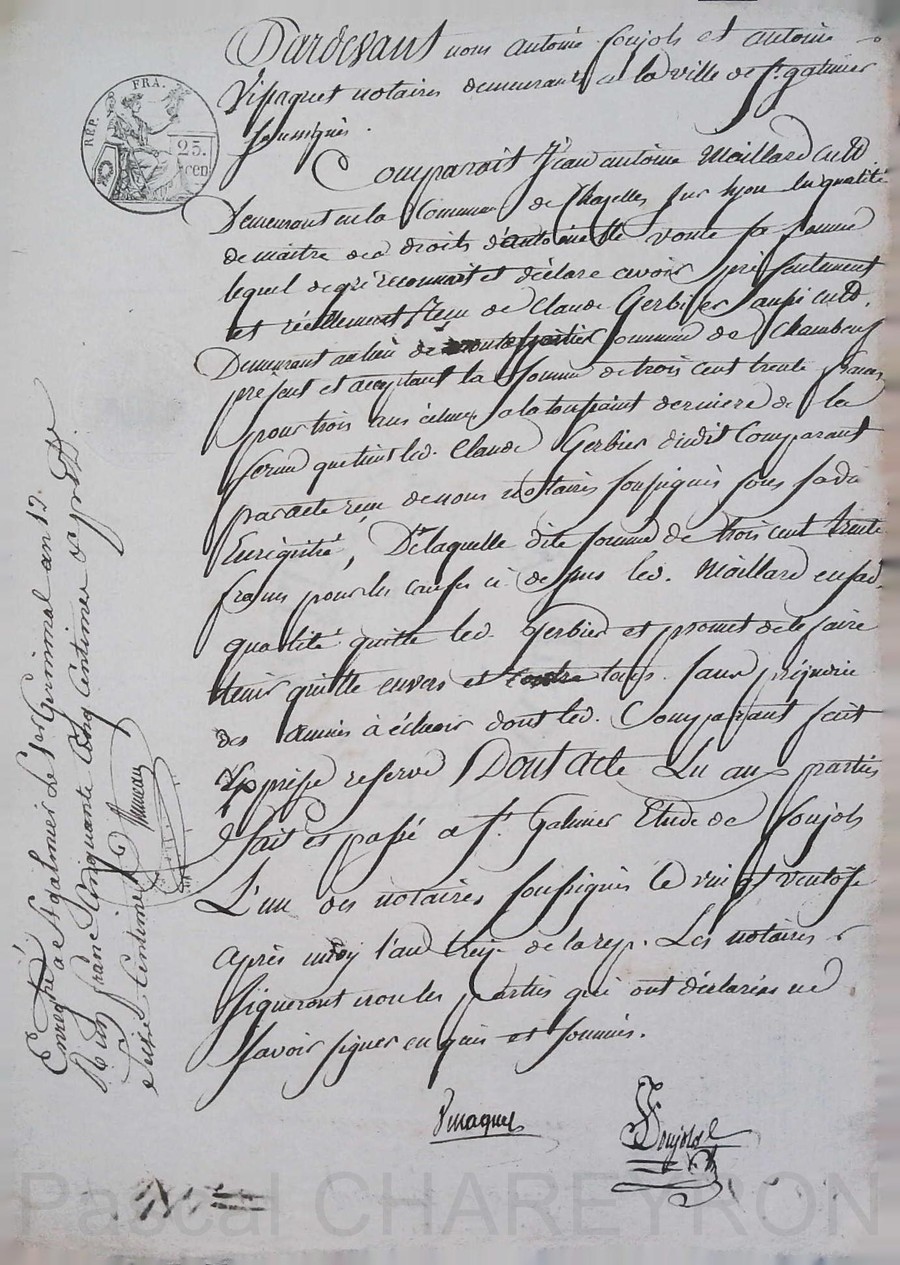 Pardevant nous antoine Soujols et antoine
Vissaguet notaires demeurants a la ville de St. galmier
soussignés.
Comparait Jean antoine Maillard cult.
Demeurant en la Commune de Chazelles sur lyon en qualité
de maitre des droits d'antoinette sa femme
lequel de gré reconnait et déclare avoir présentement
et réellement Reçu de Claude Gerbier aussi cult.
Demeurant au lieu de Commune de Chambœuf
présent et acceptant la Somme de trois cent trente francs
pour trois ans échus a la toussaint derniere de la
ferme que tient led. Claude Gerbier dudit Comparant
par acte reçu de nous notaires soussignés sous sa dte
Enrégistré, De laquelle dite somme de trois cent trente
francs pour les causes ci dessus led. Maillard en sad.
qualité quitte led. Gerbier et promet de le faire
tenir quitte envers et contre tous. Sans préjudice
des années à échoir dont led. Comparant fait
Expresse reserve Dont Acte Lu aux parties
fait et passé a St. Galmier Etude de Soujols
L'un des notaires soussignés le vingt ventose
après midy l'an treize de la rep. Les notaires
signeront non les parties qui ont déclarées ne
savoir signer enquis et sommés.
Soujols
Enregtré a St galmier le 1er Germinal an 13.
Reçu un franc Cinquante Cinq Centimes
REP. FRA.
25.
cen.
Pascal CHAREYRON